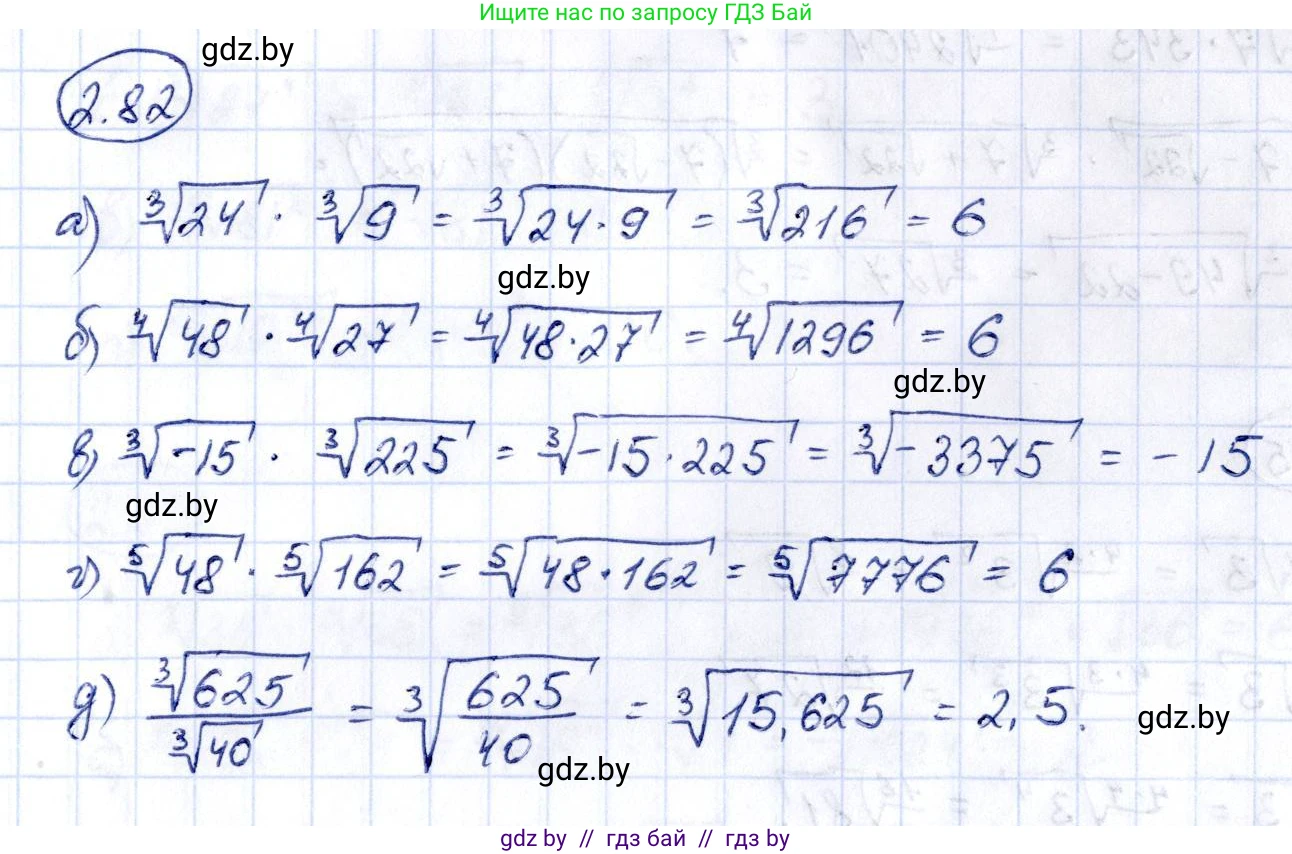 Ищите нас по запросу ГДЗ Бай
gdz.by
2.82
а) ∛24 · ∛9 = ∛(24·9) = ∛216 = 6
gdz.by
б) ∜48 · ∜27 = ∜(48·27) = ∜1296 = 6
gdz.by
в) ∛-15 · ∛225 = ∛(-15·225) = ∛-3375 = -15
gdz.by
г) ⁵√48 · ⁵√162 = ⁵√(48·162) = ⁵√7776 = 6
д) ∛625 / ∛40 = ∛(625/40) = ∛15,625 = 2,5.
gdz.by
gdz.by
gdz by // гдз бай // гдз by